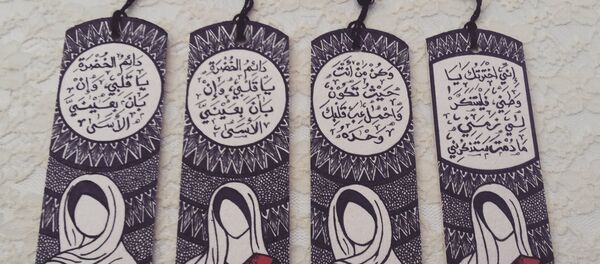 إنّي اخترتك يا
وطني، فليتنكر
لي زمني
مادمت ستذكرني
وكن من أنت
حيث تكون
واحمل عبء قلبك
وحده
دائم الخضرة
يا قلبي وإن
بان بعيني
الأسى
دائم الخضرة
يا قلبي، وإن
بان بعيني
الأسى